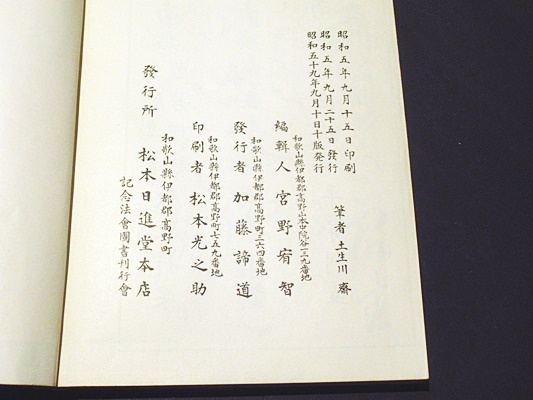 昭和五年九月十五日印刷
昭和五年九月二十五日發行
昭和五十九年九月十日十版発行
筆者 土生川 齋
和歌山縣伊都郡高野山本中院谷一三九番地
編輯人 宮野宥智
和歌山縣伊都郡高野町三六四番地
發行者 加藤諦道
和歌山縣伊都郡高野町七五九番地
印刷者 松本光之助
和歌山縣伊都郡高野町
發行所 松本日進堂本店
記念法會圖書刊行會